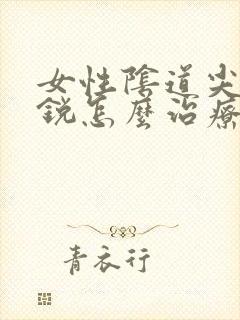 女性陰道尖
銳怎麼治療
青衣行